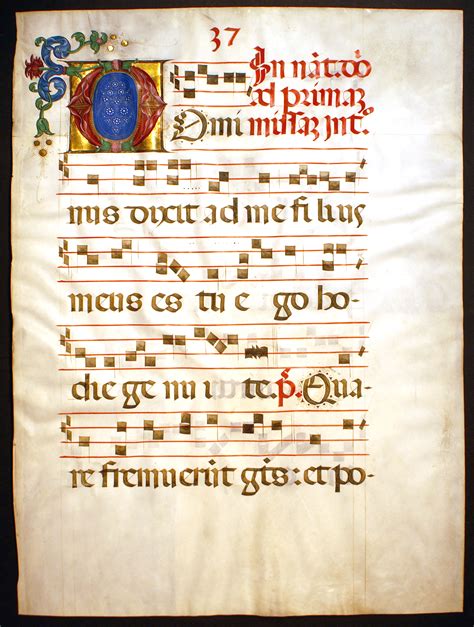 37
In nāt. dō
ad primaʒ
missaʒ intº.
Domi
nus dixit ad me filius
meus es tu e go ho-
die ge nui te. p̃. Qua-
re fremuerūt gẽs: et po-